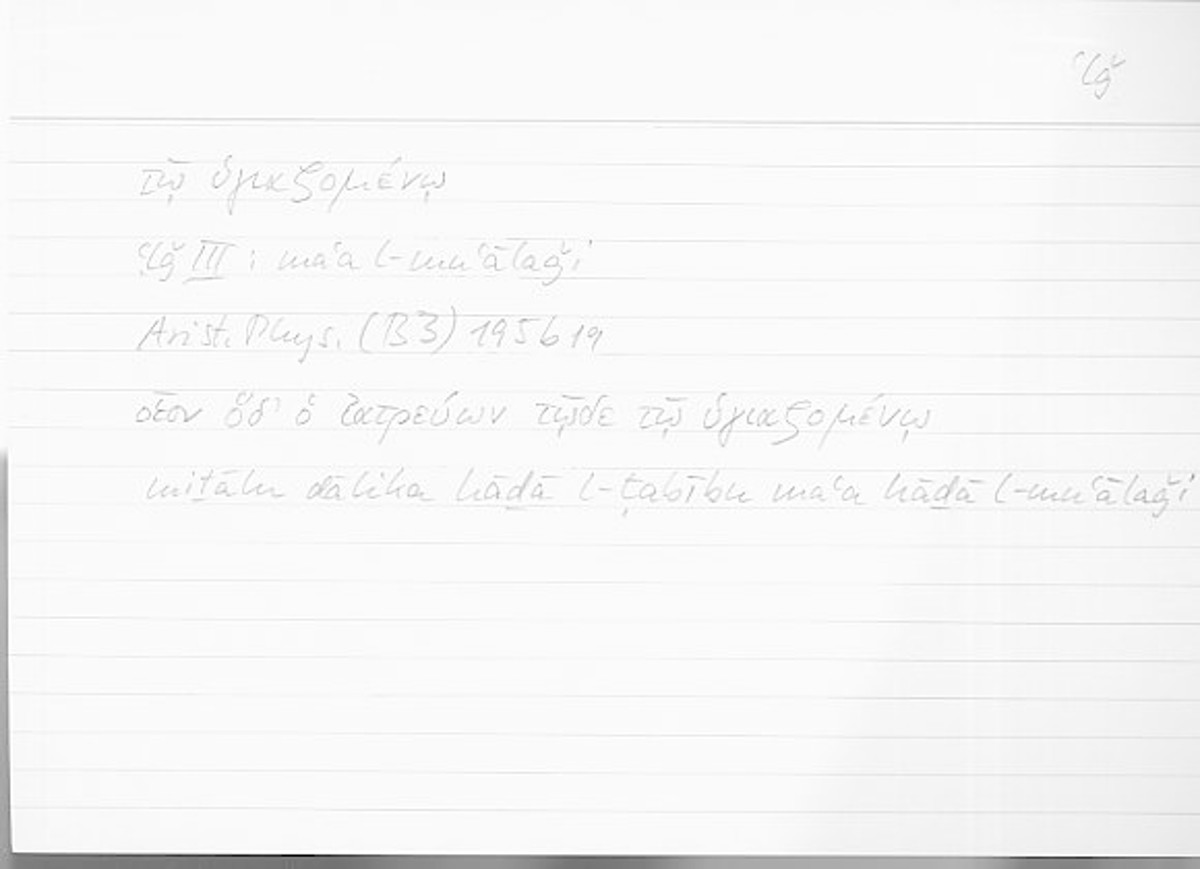 ʿlǧ
τῷ ὑγιαζομένῳ
ʿlǧ III : maʿa l-muʿālaǧi
Arist. Phys. (B3) 195b19
οἷον ὅδ' ὁ ἰατρεύων τῷδε τῷ ὑγιαζομένῳ
miṯālu ḏālika hāḏā l-ṭabību maʿa hāḏā l-muʿālaǧi